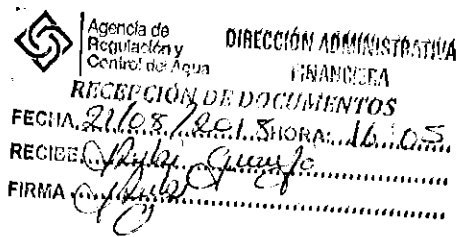 Agencia de
Regulación y
Control del Agua
DIRECCIÓN ADMINISTRATIVA
FINANCIERA
RECEPCIÓN DE DOCUMENTOS
FECHA 21/08/2018 HORA: 16:05
RECIBE:
FIRMA